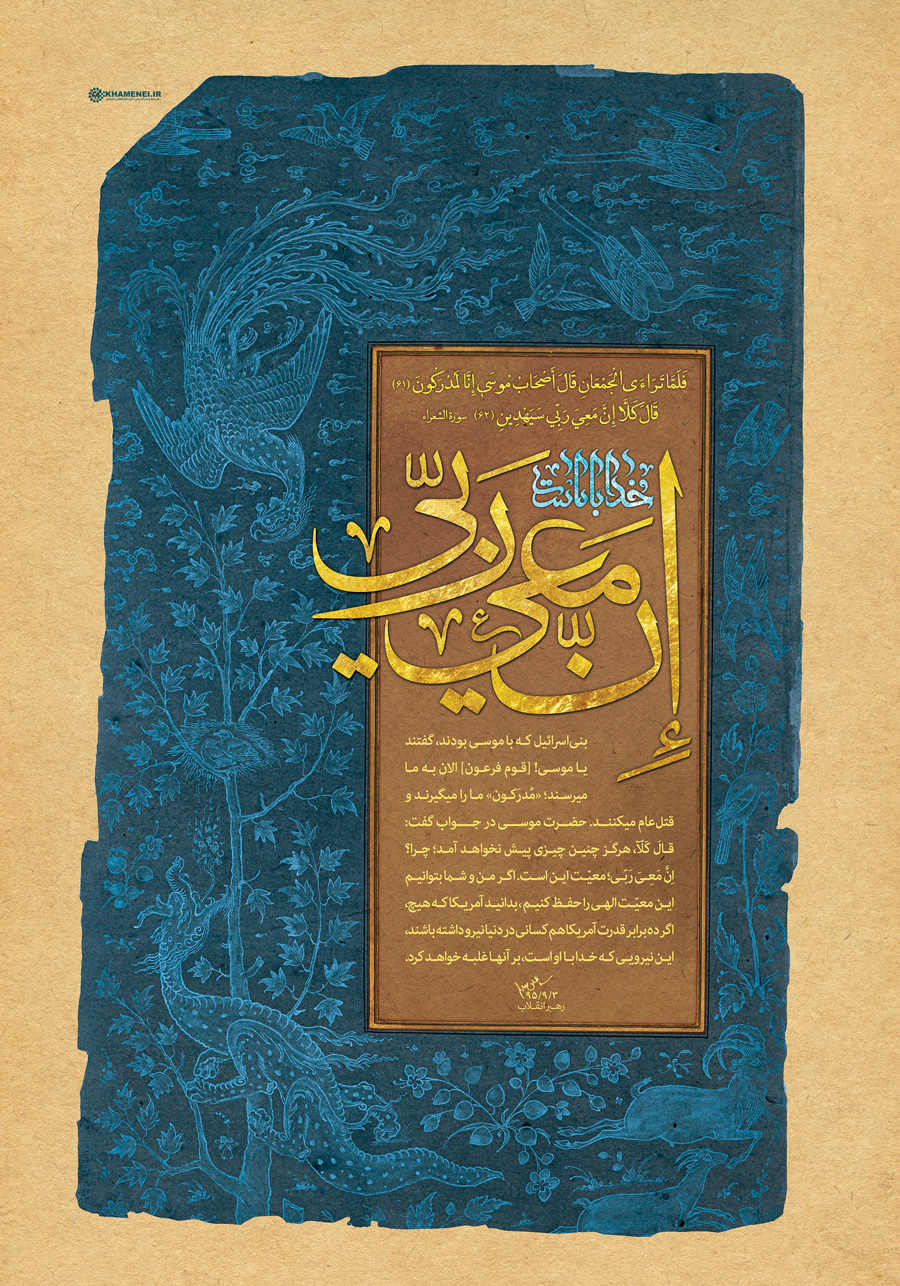 KHAMENEI.IR
فَلَمَّا تَرَاءَى الْجَمْعَانِ قَالَ أَصْحَابُ مُوسَىٰ إِنَّا لَمُدْرَكُونَ (۶۱)
قَالَ كَلَّا إِنَّ مَعِيَ رَبِّي سَيَهْدِينِ (۶۲) سورة الشعراء
خدا با ماست
إِنَّ مَعِيَ رَبِّي
بنی‌اسرائیل که با موسی بودند، گفتند
یا موسی! [قوم فرعون] الان به ما
میرسند؛ «مُدرَکون» ما را میگیرند و
قتل‌عام میکنند. حضرت موسی در جواب گفت:
قالَ کَلّا، هرگز چنین چیزی پیش نخواهد آمد؛ چرا؟
اِنَّ مَعِیَ رَبّی؛ معیّت این است. اگر من و شما بتوانیم
این معیّت الهی را حفظ کنیم، بدانید آمریکا که هیچ،
اگر ده برابر قدرت آمریکا هم کسانی در دنیا نیرو داشته باشند،
این نیرویی که خدا با او است، بر آنها غلبه خواهد کرد.
۹۵/۹/۳
رهبر انقلاب